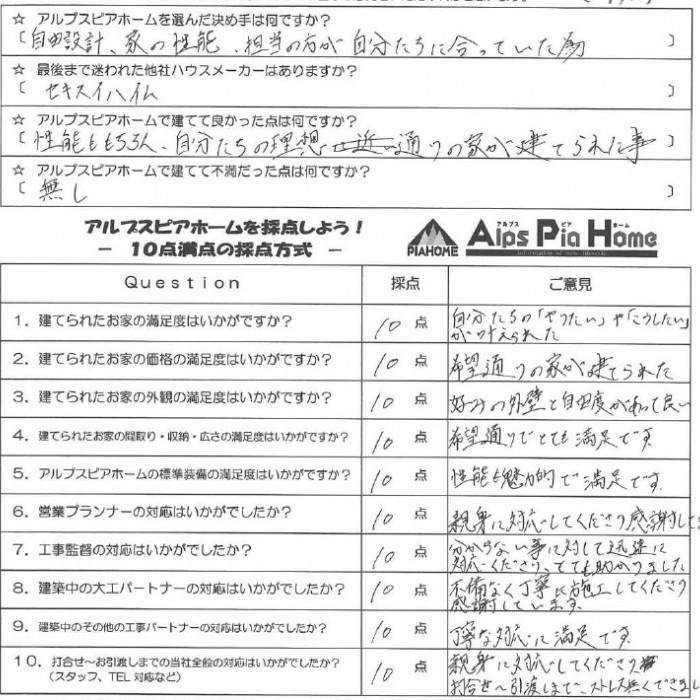 ☆ アルプスピアホームを選んだ決め手は何ですか?
[自由設計、家の性能、担当の方が自分たちに合っていた為]
☆ 最後まで迷われた他社ハウスメーカーはありますか?
[セキスイハイム]
☆ アルプスピアホームで建てて良かった点は何ですか?
[性能ももちろん、自分たちの理想 通りの家が建てられた事]
☆ アルプスピアホームで建てて不満だった点は何ですか?
[無し]
アルプスピアホームを採点しよう!
- 10点満点の採点方式 -
PIAHOME
アルプス ピア ホーム
Alps Pia Home
Question 採点 ご意見
1. 建てられたお家の満足度はいかがですか? 10 点 自分たちの「やりたい」や「こうしたい」
が叶えられた
2. 建てられたお家の価格の満足度はいかがですか? 10 点 希望通りの家が建てられた
3. 建てられたお家の外観の満足度はいかがですか? 10 点 好みの外壁と自由度があって良い
4. 建てられたお家の間取り・収納・広さの満足度はいかがですか? 10 点 希望通りでとても満足です
5. アルプスピアホームの標準装備の満足度はいかがですか? 10 点 性能も魅力的で満足です.
6. 営業プランナーの対応はいかがでしたか? 10 点 親身に対応してくださり感謝して
7. 工事監督の対応はいかがでしたか? 10 点 分からない事に対して迅速に
対応くださりとても助かりました
8. 建築中の大工パートナーの対応はいかがでしたか? 10 点 不備なく丁寧に施工してくださり
感謝しています.
9. 建築中のその他の工事パートナーの対応はいかがでしたか? 10 点 丁寧な対応に満足です.
10. 打合せ~お引渡しまでの当社全般の対応はいかがでしたか?
(スタッフ、TEL対応など) 10 点 親身に対応してくださり
打合せ~引渡しまで、ストレス無くできまし